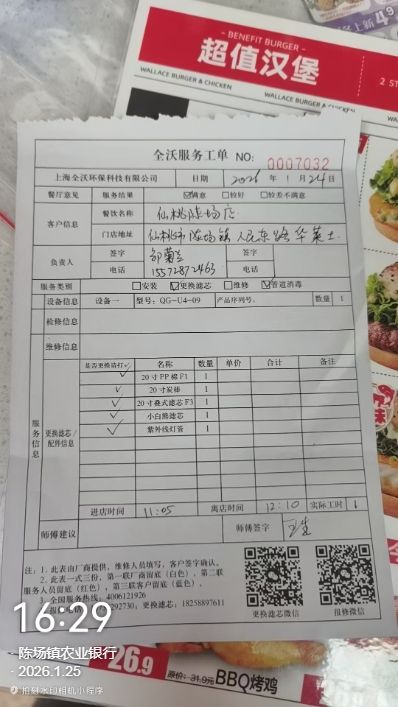 - BENEFIT BURGER -
超值汉堡
WALLACE BURGER & CHICKEN
WALLACE BURGER & CHICKEN
2 ST
全沃服务工单 NO: 0007032
上海全沃环保科技有限公司 日期 2026 年 1 月 24 日
餐厅意见 服务结果 ☑满意 □较好 □较差不满意
客户信息 餐饮名称 仙桃陈场店
门店地址 仙桃市陈场镇人民东路华莱士
负责人 签字 签字
电话 15572872463 电话
服务类别 □安装 ☑更换滤芯 □维修 ☑管道消毒
设备信息 设备一 型号: QG-U4-09 产品序列号: 数量 1
检修信息
维修信息
服务信息
更换滤芯/配件信息
是否更换请打√ 名称 数量 单价 合计 备注
√ 20寸PP棉F1 1
√ 20寸炭棒 1
√ 20寸叠式滤芯F3 1
√ 小白熊滤芯 1
√ 紫外线灯管 1
进店时间 11:05 离店时间 12:10 实际工时 1
师傅建议 师傅签字
注: 1. 此表由厂商提供, 维修人员填写, 客户签字确认。
2. 此表一式三份, 第一联厂商留底(白色)、第二联
服务人员留底(红色)、第三联客户留底(蓝色)。
3. 全国服务热线: 4006121926
292730; 更换滤芯: 18258897611
更换滤芯微信 报修微信
16:29
陈场镇农业银行
2026.1.25
26.9
原价: 31.9元 BBQ烤鸡